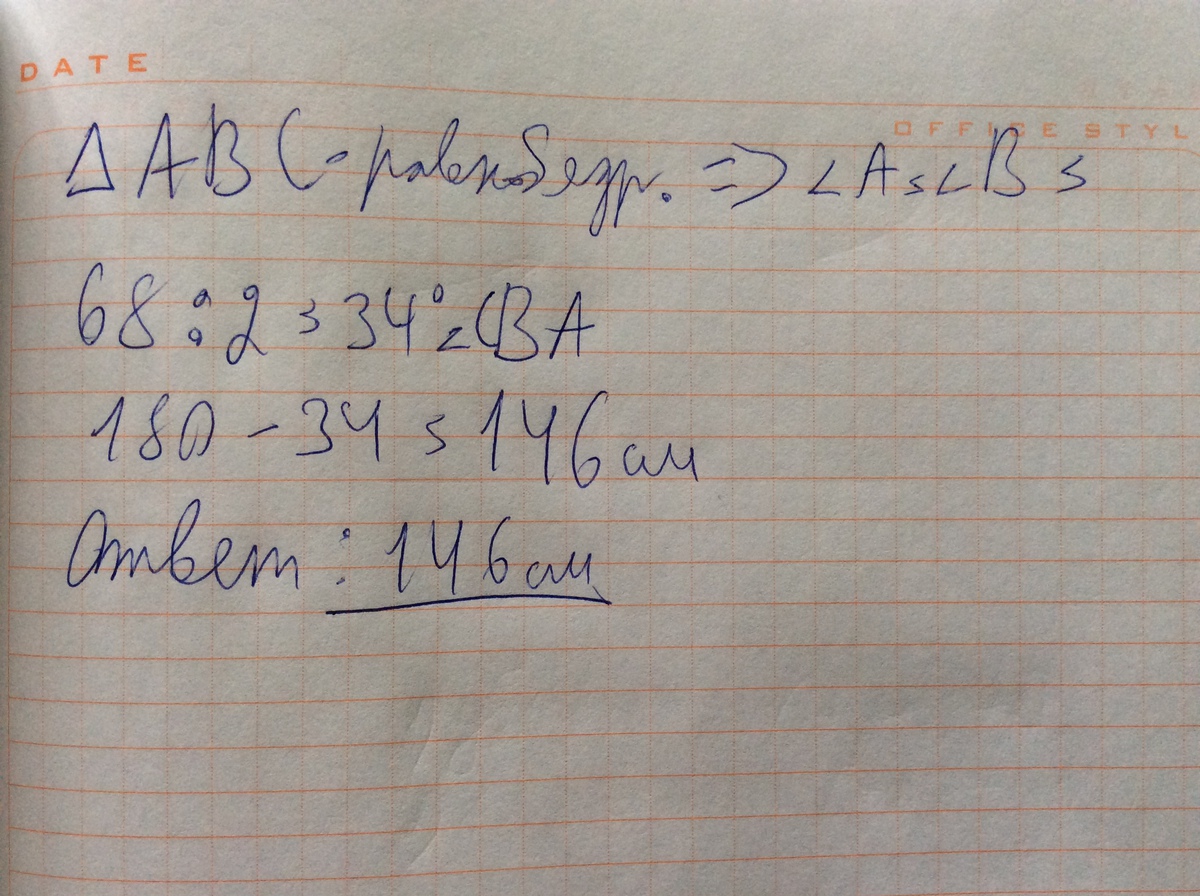 DATE
OFFICE STYL
△ABC - равнобедр. => ∠A = ∠B =
68 : 2 = 34° ∠CBA
180 - 34 = 146 см
Ответ: 146 см